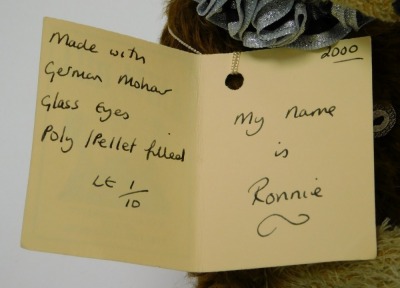 Made with
German Mohair
Glass Eyes
Poly/Pellet filled
LE 1/10
2000
My name
is
Ronnie